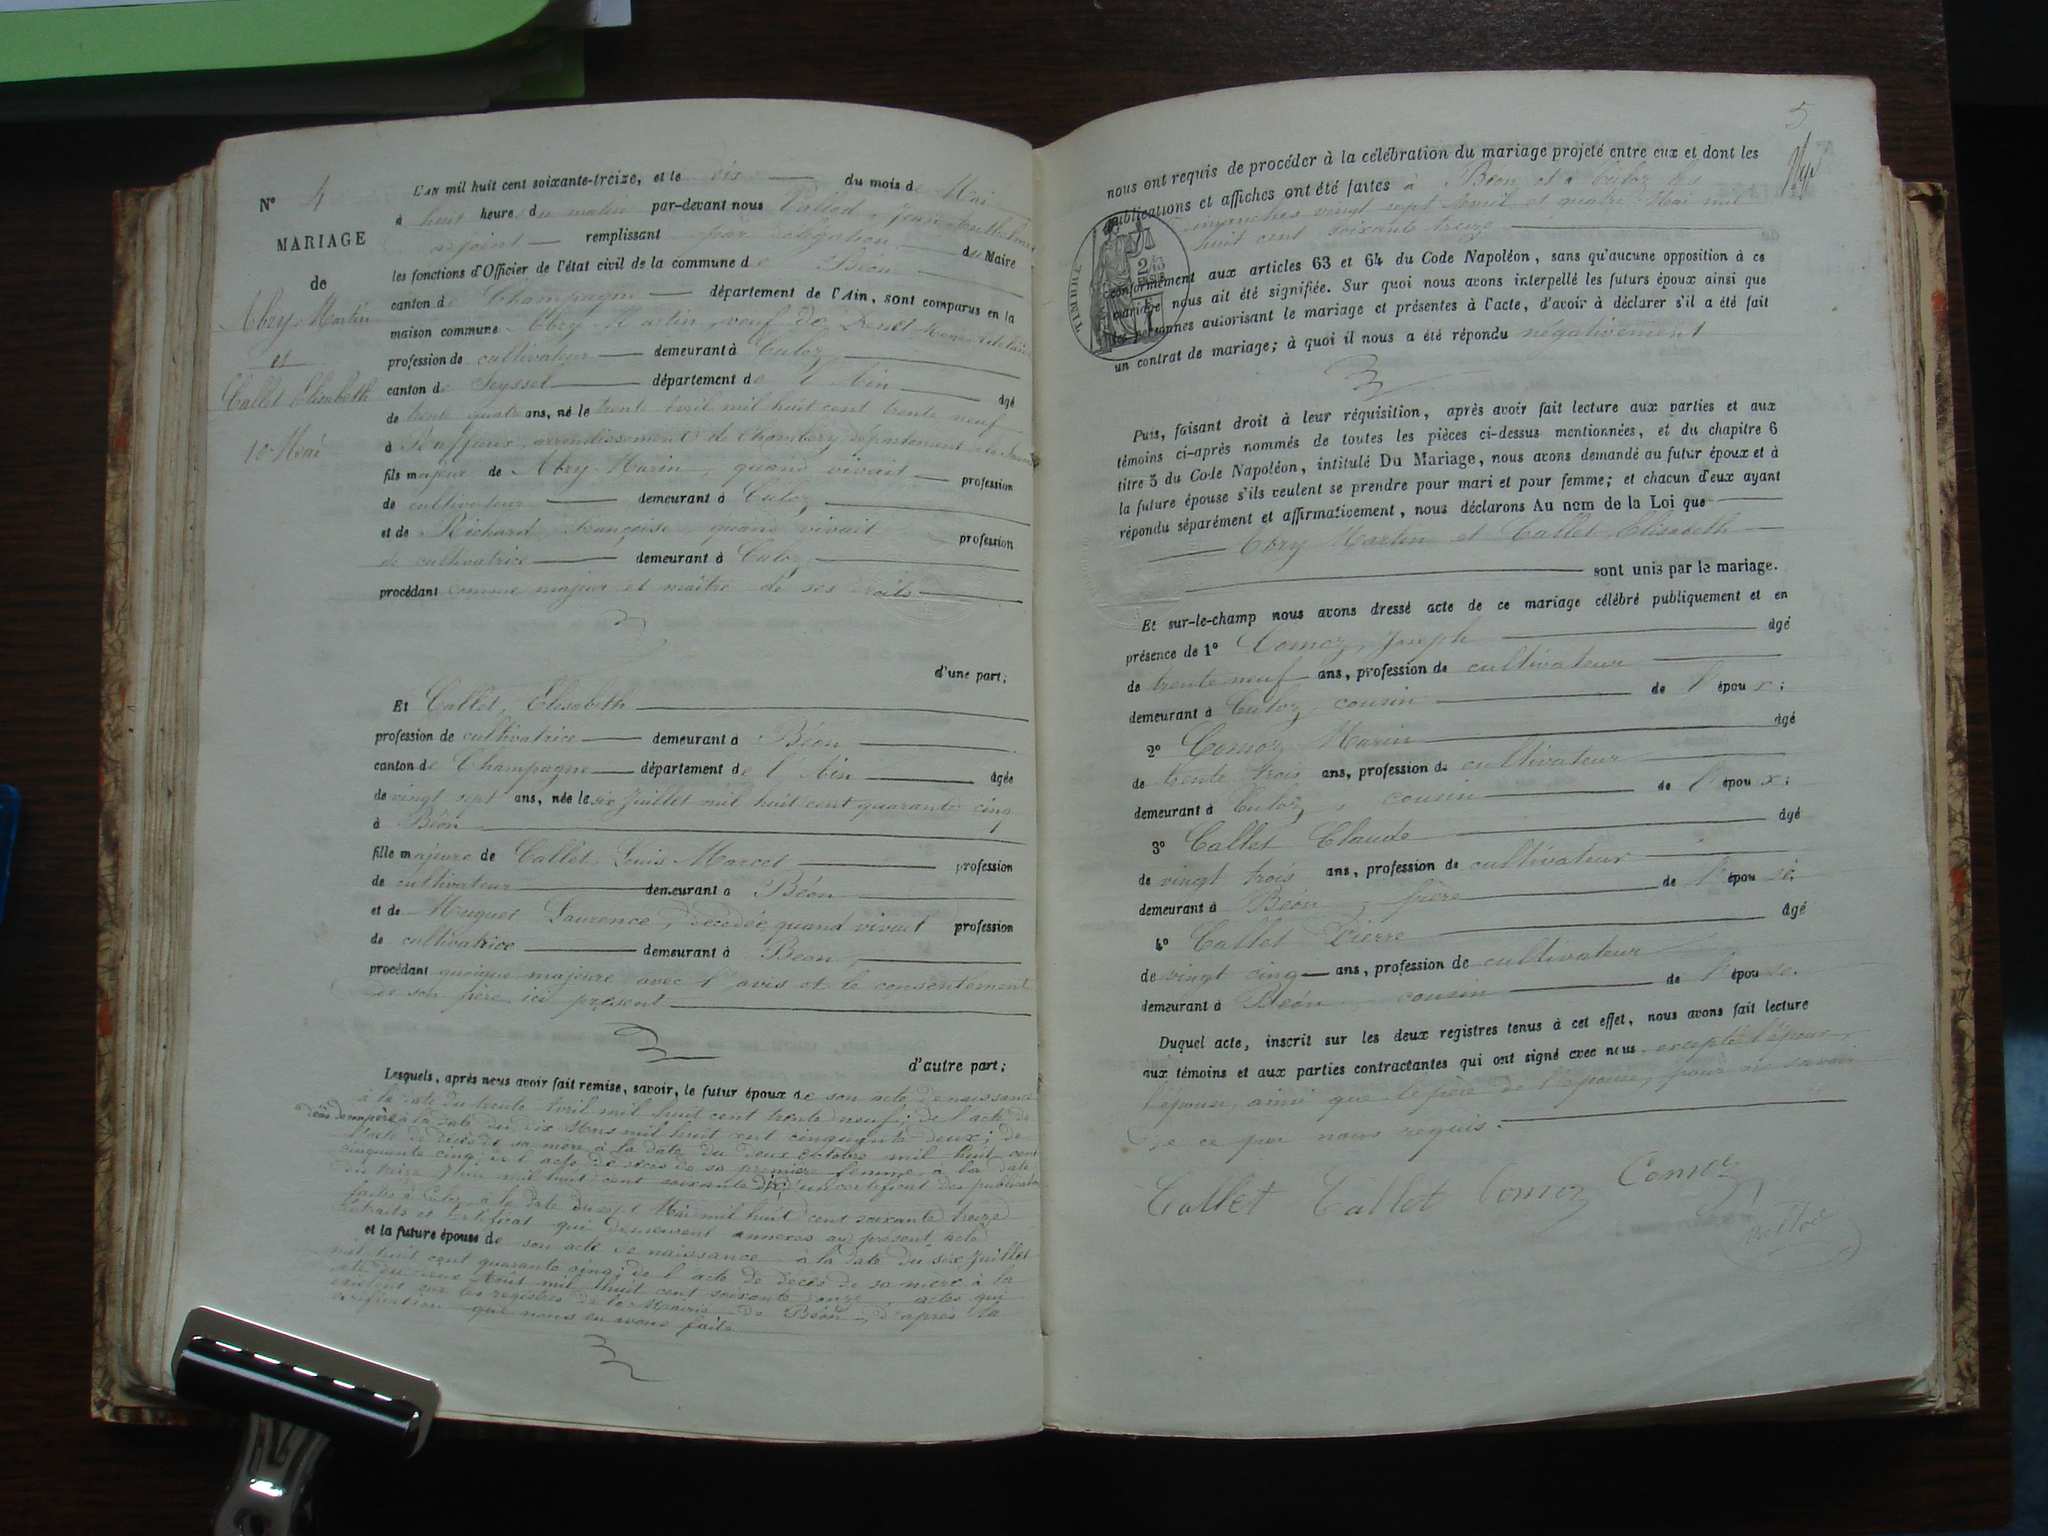 N° 4
MARIAGE
de
Abry Martin
et
Callet Elisabeth
10 Mai
L'AN mil huit cent soixante-treize, et le dix du mois de Mai
à huit heure du matin par-devant nous Jean
adjoint remplissant par délégation du Maire
les fonctions d'Officier de l'état civil de la commune de Béon
canton de Champagne département de l'Ain, sont comparus en la
maison commune Abry Martin, veuf de
profession de cultivateur demeurant à Culoz
canton de Seyssel département de l'Ain âgé
de trente quatre ans, né le trente Avril mil huit cent trente neuf
à Ruffieux, arrondissement de Chambéry, département de la Savoie
fils majeur de Abry Marin, quand vivait profession
de cultivateur demeurant à Culoz
et de Richard Françoise, quand vivait profession
de cultivatrice demeurant à Culoz
procédant comme majeur et maître de ses droits
d'une part;
Et Callet, Elisabeth
profession de cultivatrice demeurant à Béon
canton de Champagne département de l'Ain âgée
de vingt sept ans, née le six Juillet mil huit cent quarante cinq
à Béon
fille majeure de Callet Louis Marcel profession
de cultivateur demeurant à Béon
et de Huguet Laurence, décédée, quand vivait profession
de cultivatrice demeurant à Béon,
procédant quoique majeure avec l'avis et le consentement
de son père ici présent
d'autre part;
Lesquels, après nous avoir fait remise, savoir, le futur époux de son acte de naissance
à la date du trente Avril mil huit cent trente neuf; de l'acte de
décès de son père à la date du dix Mars mil huit cent cinquante deux; de
l'acte de décès de sa mère à la date du deux Octobre mil huit cent
cinquante cinq; de l'acte de décès de sa première femme à la date
du treize Juin mil huit cent soixante dix; d'un certificat de publication
faites à Culoz à la date du sept Mai mil huit cent soixante treize
extraits et certificat qui demeurent annexés au présent acte
et la future épouse de son acte de naissance à la date du six Juillet
mil huit cent quarante cinq; de l'acte de décès de sa mère à la
date du deux Août mil huit cent soixante onze actes qui
existent sur les registres de la Mairie de Béon, d'après la
vérification que nous en avons faite
5
nous ont requis de procéder à la célébration du mariage projeté entre eux et dont les
publications et affiches ont été faites à Béon et à Culoz les
dimanches vingt sept Avril et quatre Mai mil
huit cent soixante treize
TIMBRE
conformément aux articles 63 et 64 du Code Napoléon, sans qu'aucune opposition à ce
mariage nous ait été signifiée. Sur quoi nous avons interpellé les futurs époux ainsi que
les personnes autorisant le mariage et présentes à l'acte, d'avoir à déclarer s'il a été fait
un contrat de mariage; à quoi il nous a été répondu négativement
Puis, faisant droit à leur réquisition, après avoir fait lecture aux parties et aux
témoins ci-après nommés de toutes les pièces ci-dessus mentionnées, et du chapitre 6
titre 5 du Code Napoléon, intitulé Du Mariage, nous avons demandé au futur époux et à
la future épouse s'ils veulent se prendre pour mari et pour femme; et chacun d'eux ayant
répondu séparément et affirmativement, nous déclarons Au nom de la Loi que
Abry Martin et Callet Elisabeth
sont unis par le mariage.
Et sur-le-champ nous avons dressé acte de ce mariage célébré publiquement et en
présence de 1° Comoz Joseph âgé
de trente neuf ans, profession de cultivateur
demeurant à Culoz, cousin de l'époux;
2° Comoz Marin âgé
de trente trois ans, profession de cultivateur
demeurant à Culoz, cousin de l'époux;
3° Callet Claude âgé
de vingt trois ans, profession de cultivateur
demeurant à Béon, frère de l'épouse;
4° Callet Pierre âgé
de vingt cinq ans, profession de cultivateur
demeurant à Béon, cousin de l'épouse.
Duquel acte, inscrit sur les deux registres tenus à cet effet, nous avons fait lecture
aux témoins et aux parties contractantes qui ont signé avec nous excepté l'époux,
l'épouse, ainsi que le père de l'épouse, pour ne savoir
de ce par nous requis.
Callet Callet Comoz Comoz